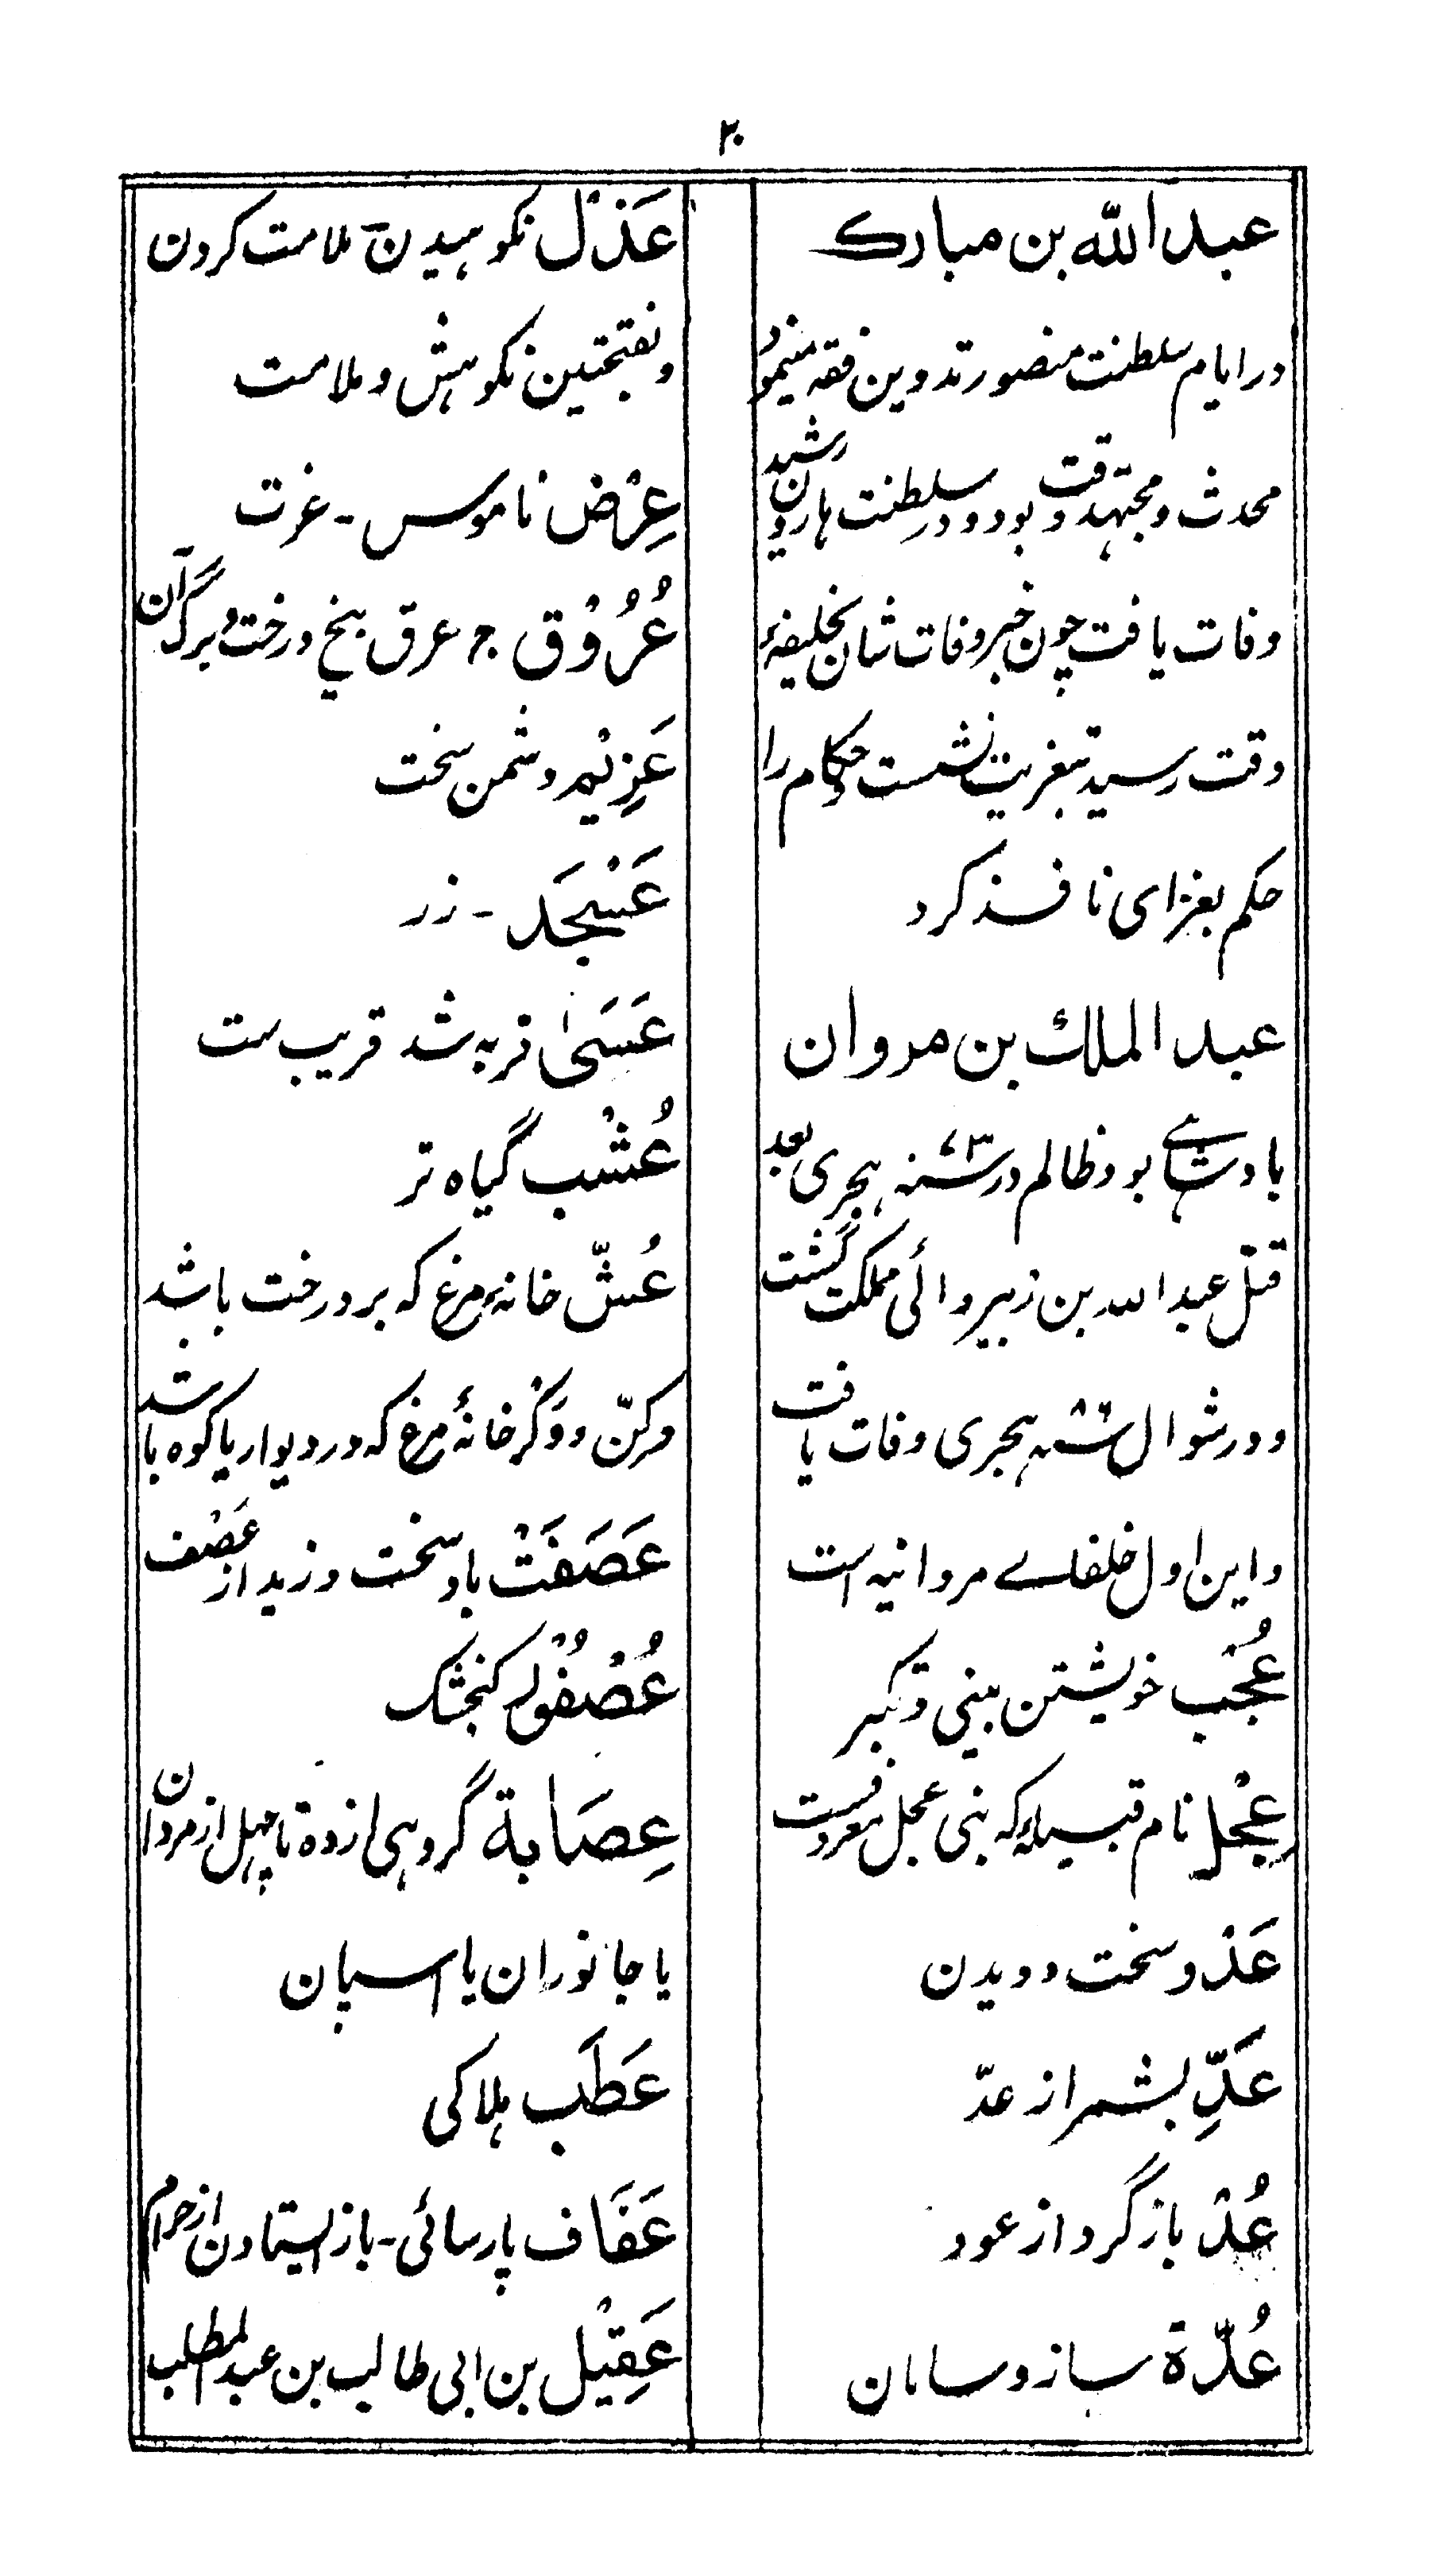 ۲۰
عبد الله بن مبارك
در ایام سلطنت منصور تدوین فقه مینمود
محدث و مجتهد وقت بود و در سلطنت هارون رشید
وفات یافت چون خبر وفات شان بخلیفۂ
وقت رسید بتعزیت نشست و حکام را
حکم بعزای نافذ کرد
عبد الملك بن مروان
بادشاہے بود ظالم در ۷۳ سنہ ہجری بعد
قتل عبد اللہ بن زبیر والئ مملکت گشت
و در شوال سنہ ہجری وفات یافت
و این اول خلفاے مروانیہ است
عُجْب خویشتن بینی و تکبر
عِجْل نام قبیلہ کہ بنی عجل معروفست
عَدْو سخت دویدن
عَدِّ بشمر از عدّ
عُدْ بازگرد از عود
عُدَّة ساز و سامان
عَذْل نکوہیدن ملامت کردن
و بفتحتین نکوہش و ملامت
عِرْض ناموس - عزت
عُرُوْق ج عرق بیخ درخت و برگ آن
عَزِيْم دشمن سخت
عَسْجَد - زر
عَسَىٰ فربہ شد قریب ست
عُشْب گیاہ تر
عُشّ خانۂ مرغ کہ بر درخت باشد
و کنّ و وَکْر خانۂ مرغ کہ در دیوار یا کوہ باشد
عَصَفَتْ باد سخت وزید از عَصْف
عُصْفُوْر کنجشک
عِصَابة گروہی از دہ تا چہل از مردان
یا جانوران یا اسپان
عَطَب ہلاکی
عَفَاف پارسائی - باز ایستادن از حرام
عَقِيْل بن ابی طالب بن عبد المطلب